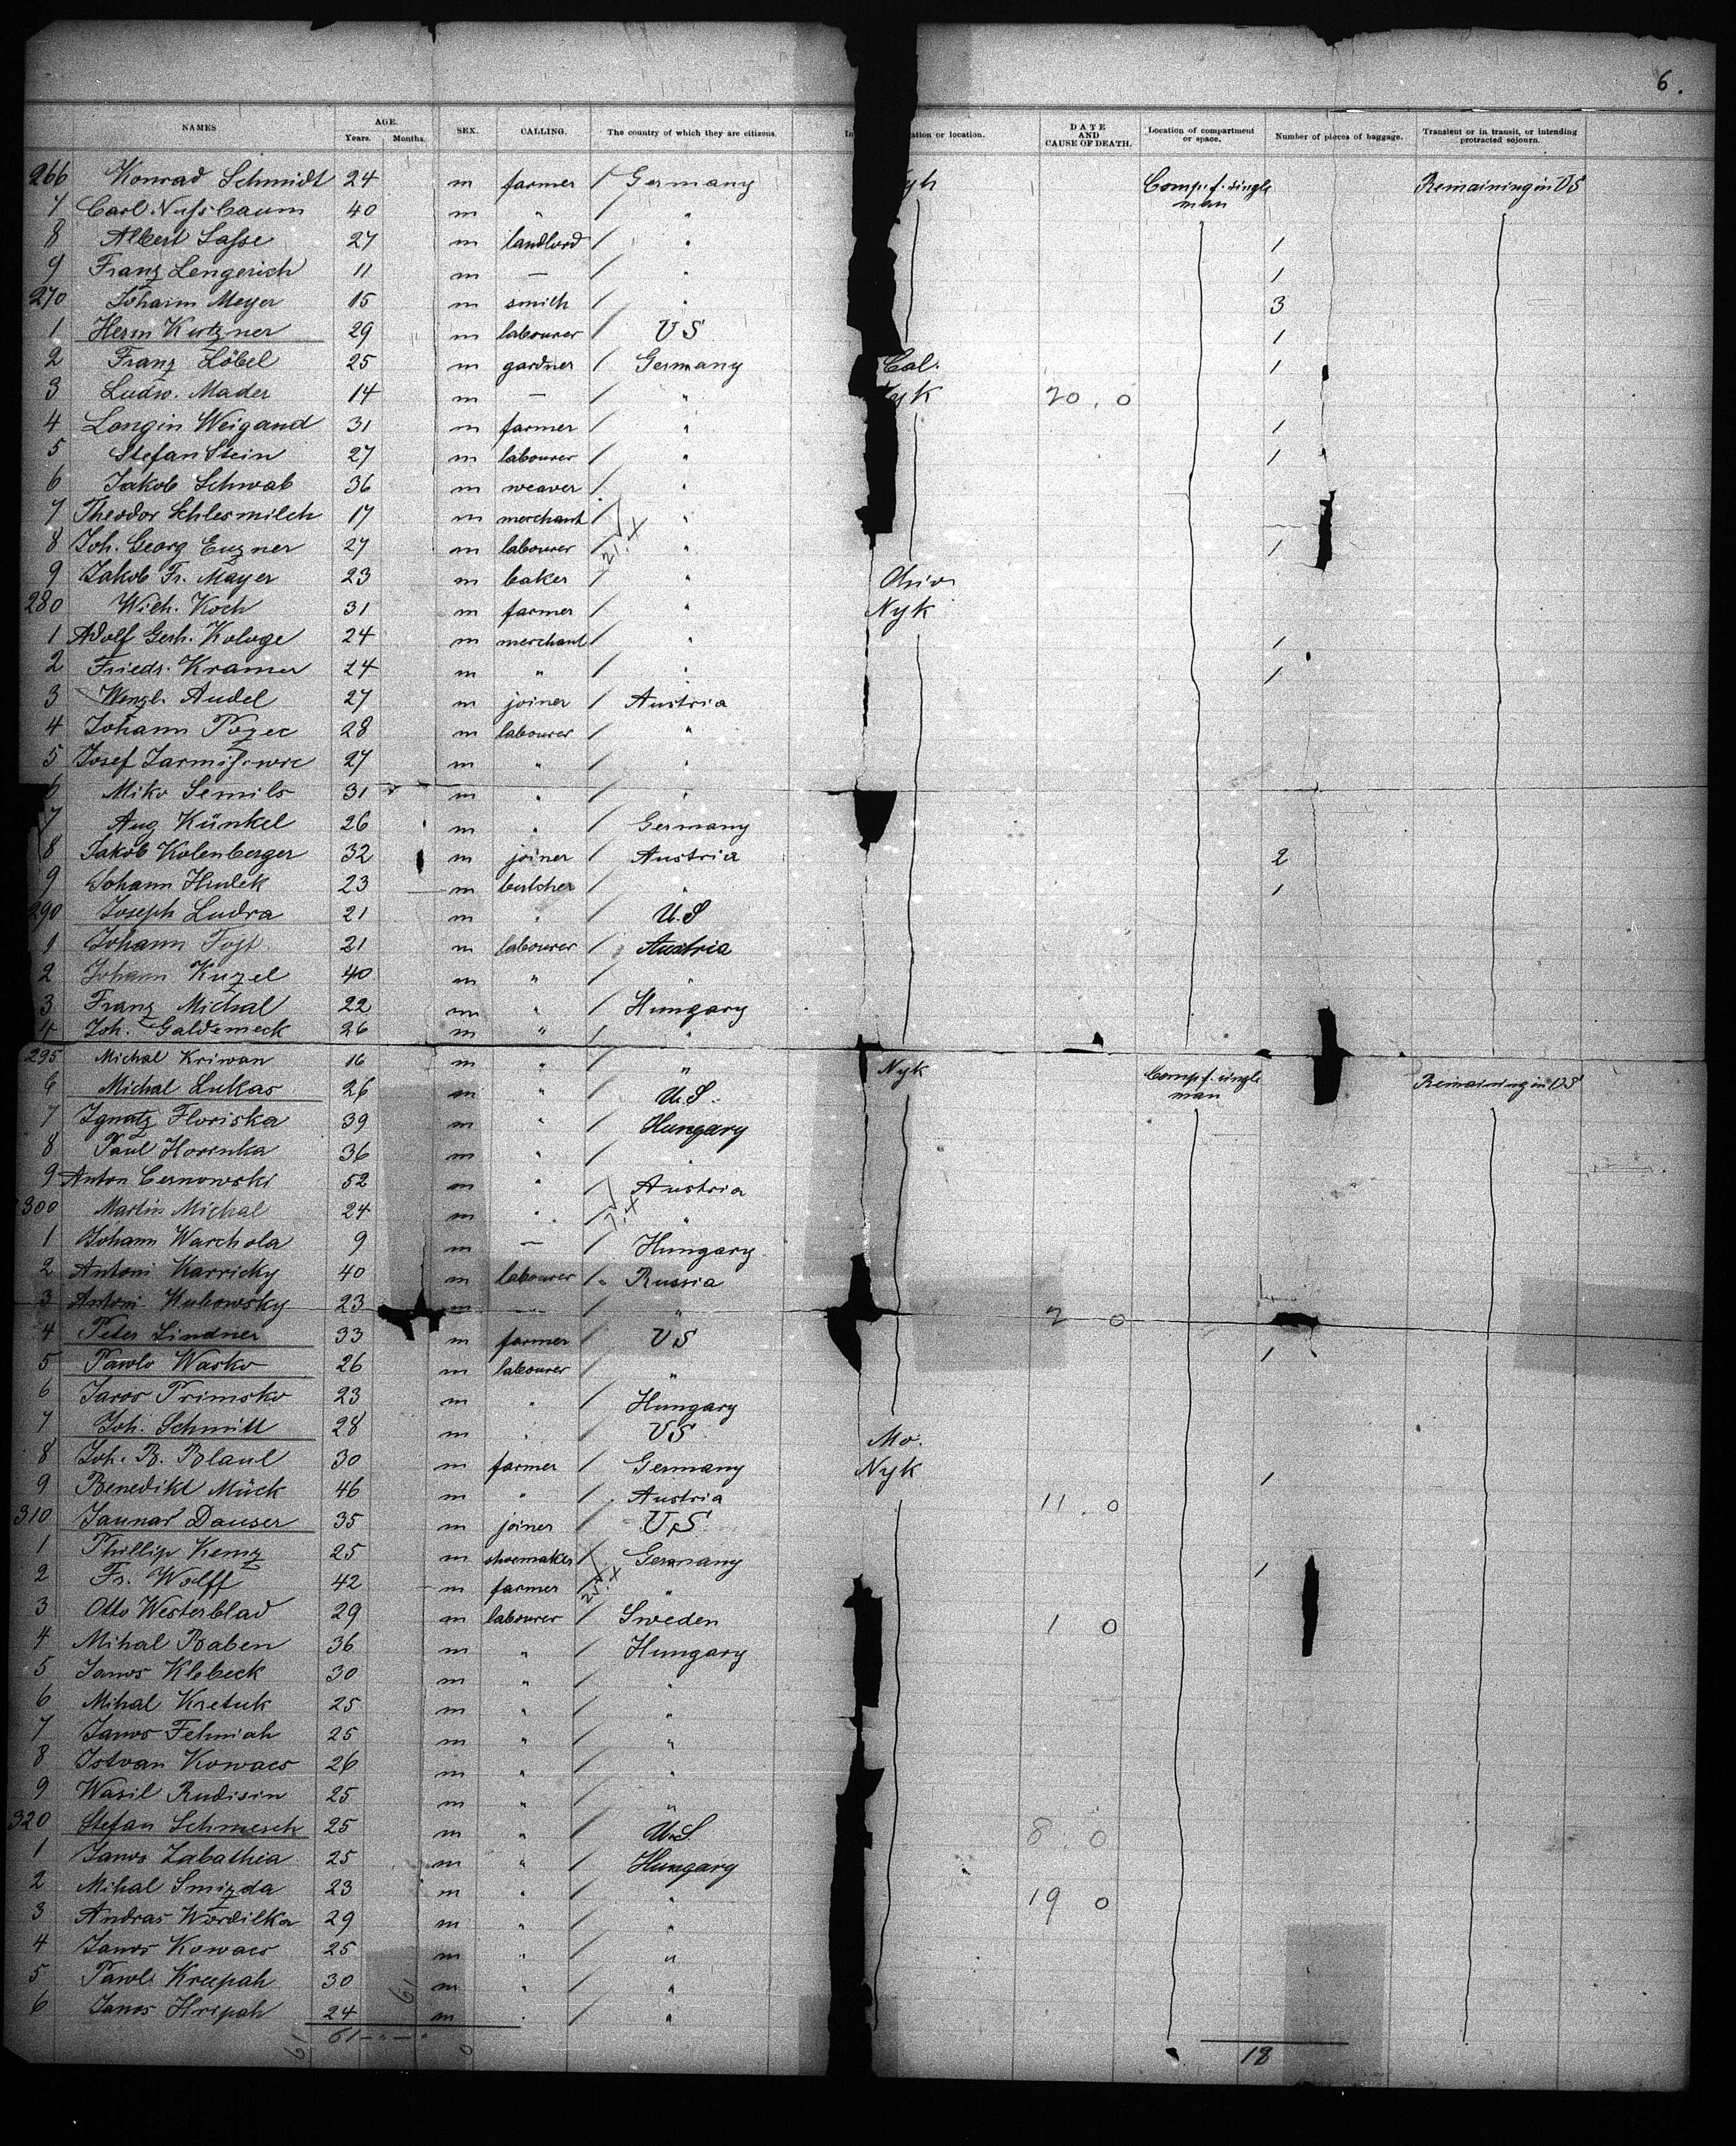 6.
NAMES AGE. Years. Months. SEX. CALLING. The country of which they are citizens. ation or location. DATE AND CAUSE OF DEATH. Location of compartment or space. Number of pieces of baggage. Transient or in transit, or intending protracted sojourn.
266 Konrad Schmidt 24 m farmer / Germany Comp. f. single man Remaining in US
7 Carl Nufsbaum 40 m " / "
8 Albert Lafse 27 m landlord / " 1
9 Franz Lengerich 11 m — / " 1
270 Johann Meyer 15 m smith / " 3
1 Herm Kutzner 29 m labourer / US 1
2 Franz Löbel 25 m gardner / Germany Cal. 1
3 Ludw. Mader 14 m — / " yk 20.0
4 Longin Weigand 31 m farmer / " 1
5 Stefan Stein 27 m labourer / " 1
6 Jakob Schwab 36 m weaver / "
7 Theodor Schlesmilch 17 m merchant / "
8 Joh. Georg Euzner 27 m labourer / " 1
9 Jakob Fr. Mayer 23 m baker / "
280 Wilh. Koch 31 m farmer / " Nyk
1 Adolf Gerh. Kologe 24 m merchant / " 1
2 Friedr. Kramer 24 m " / " 1
3 Wenzl. Audel 27 m joiner / Austria
4 Johann Pozec 28 m labourer / "
5 Josef 27 m " / "
6 Miko Semils 31 m " / "
7 Aug Künkel 26 m " / Germany
8 Jakob Kolenberger 32 m joiner / Austria 2
9 Johann Hudek 23 m butcher / " 1
290 Joseph Ludra 21 m " / U.S
1 Johann 21 m labourer / Austria
2 Johann Kuzel 40 m " / "
3 Franz Michal 22 m " / Hungary
4 Joh. Galdemeck 26 m " / "
295 Michal Kriwan 16 m " / " Nyk Comp. f. single man Remaining in US
6 Michal Lukas 26 m " / U.S.
7 Ignatz Floriska 39 m " / Hungary
8 Paul Horinka 36 m " / "
9 Anton Cernowski 52 m " / Austria
300 Martin Michal 24 m " / "
1 Johann Warchola 9 m — / Hungary
2 Antoni Karricky 40 m labourer / Russia
3 Antoni Kubowsky 23 m — / " 2 0
4 Peter Lindner 33 m farmer / US
5 Pawlo Wasko 26 m labourer / " 1
6 Janos Primsko 23 m " / Hungary
7 Joh. Schmitt 28 m " / US Mo.
8 Joh. B. Blaul 30 m farmer / Germany Nyk 1
9 Benedikt Mück 46 m " / Austria 11 0
310 Dauser 35 m joiner / US
1 Phillip Kemz 25 m shoemaker / Germany 1
2 Fr. Wolff 42 m farmer / "
3 Otto Westerblad 29 m labourer / Sweden 1 0
4 Mihal Baben 36 m " / Hungary
5 Janos Klebeck 30 m " / "
6 Mihal Kretuk 25 m " / "
7 Janos Felmiah 25 m " / "
8 Istvan Kowacs 26 m " / "
9 Wasil Rudisin 25 m " / "
320 Stefan Schmesch 25 m " / U.S. 8.0
1 Janos Labathia 25 m " / Hungary
2 Mihal Smizda 23 m " / " 19 0
3 Andras Wordilka 29 m " / "
4 Janos Kowacs 25 m " / "
5 Pawls Krepah 30 m " / "
6 Janos Hripah 24 m " / "
61 18